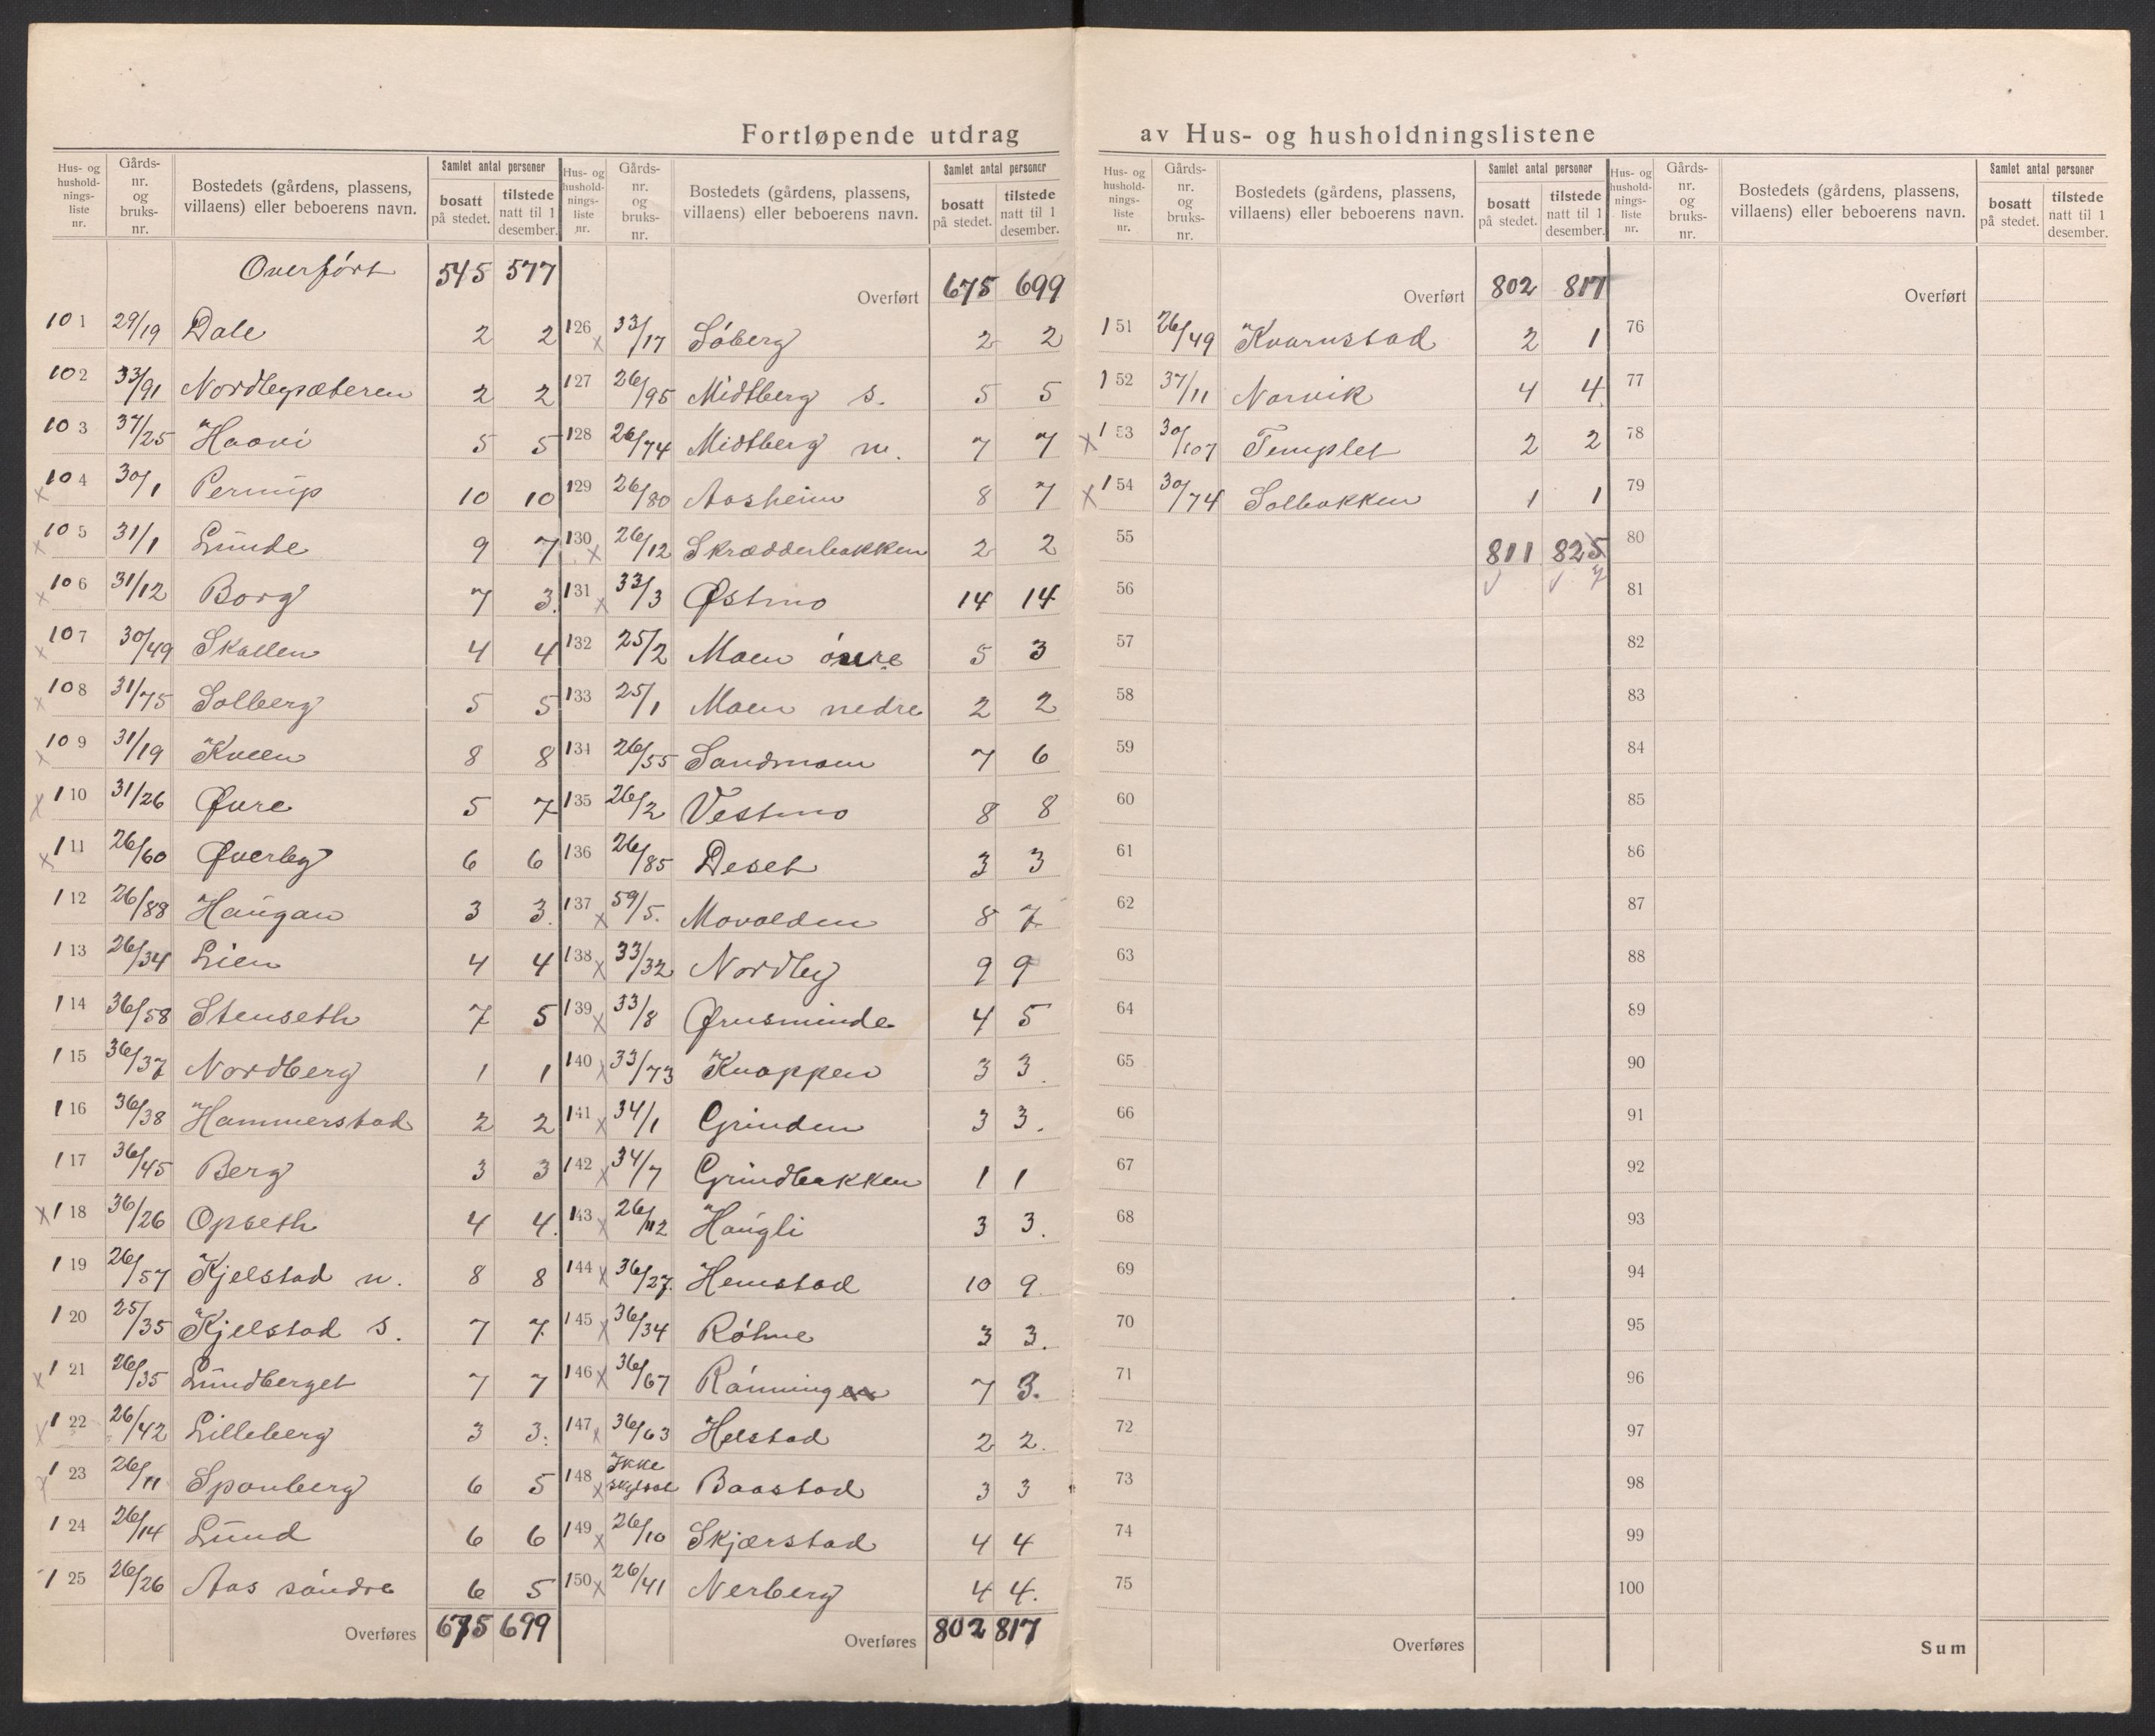 Fortløpende utdrag av Hus- og husholdningslistene
Hus- og hushold-nings-liste nr. Gårds-nr. og bruks-nr. Bostedets (gårdens, plassens, villaens) eller beboerens navn. Samlet antal personer bosatt på stedet. tilstede natt til 1 desember.
Overført 545 577
101 29/19 Dale 2 2
102 33/91 Nordbysæteren 2 2
103 37/25 Haavi 5 5
x 104 30/1 Perrup 10 10
x 105 31/1 Lunde 9 7
x 106 31/12 Borg 7 3.
x 107 30/49 Skallen 4 4
x 108 31/75 Solberg 5 5
x 109 31/19 Kveen 8 8
x 110 31/26 Øvre 5 7
x 111 26/60 Øverby 6 6
112 26/88 Haugan 3 3.
113 26/34 Lien 4 4
114 36/58 Stenseth 7 5
115 36/37 Nordberg 1 1
116 36/38 Hammerstad 2 2
117 36/45 Berg 3 3
x 118 36/26 Opseth 4 4.
119 26/57 Kjelstad n. 8 8
120 25/35 Kjelstad s. 7 7
x 121 26/35 Lundberget 7 7
x 122 26/42 Lilleberg 3 3.
x 123 26/11 Sponberg 6 5
124 26/14 Lund 6 6
125 26/26 Aas søndre 6 5
Overføres 675 699
Hus- og hushold-nings-liste nr. Gårds-nr. og bruks-nr. Bostedets (gårdens, plassens, villaens) eller beboerens navn. Samlet antal personer bosatt på stedet. tilstede natt til 1 desember.
Overført 675 699
126 x 33/17 Søberg 2 2
127 26/95 Midtberg s. 5 5
128 26/74 Midtberg n. 7 7
129 26/80 Aasheim 8 7
130 x 26/12 Skrædderbakken 2 2
131 x 33/3 Østmo 14 14
132 25/2 Moen øvre 5 3
133 25/1 Moen nedre 2 2
134 26/55 Sandmoen 7 6
135 26/2 Vestmo 8 8
136 26/85 Deset 3 3
137 x 59/5. Movolden 8 7
138 x 33/32 Nordby 9 9
139 x 33/8 Ørnsminde 4 5
140 x 33/73 Knappen 3 3.
141 x 34/1 Grinden 3 3.
142 x 34/7 Grindbakken 1 1
143 x 26/112 Haugli 3 3.
144 x 36/27. Hemstad 10 9.
145 x 36/34 Røhne 3 3.
146 x 36/67 Rønningen 7 3.
147 x 36/63 Helstad 2 2.
148 x Ikke skyldsat Baastad 3 3
149 x 26/10 Skjærstad 4 4
150 x 26/41 Nerberg 4 4.
Overføres 802 817
Hus- og hushold-nings-liste nr. Gårds-nr. og bruks-nr. Bostedets (gårdens, plassens, villaens) eller beboerens navn. Samlet antal personer bosatt på stedet. tilstede natt til 1 desember.
Overført 802 817
151 26/49 Kvarnstad 2 1
152 37/11 Norvik 4 4
x 153 30/107 Templet 2 2
x 154 30/74 Solbakken 1 1
55 811 825
56 7
57
58
59
60
61
62
63
64
65
66
67
68
69
70
71
72
73
74
75
Overføres
Hus- og hushold-nings-liste nr. Gårds-nr. og bruks-nr. Bostedets (gårdens, plassens, villaens) eller beboerens navn. Samlet antal personer bosatt på stedet. tilstede natt til 1 desember.
Overført
76
77
78
79
80
81
82
83
84
85
86
87
88
89
90
91
92
93
94
95
96
97
98
99
100
Sum